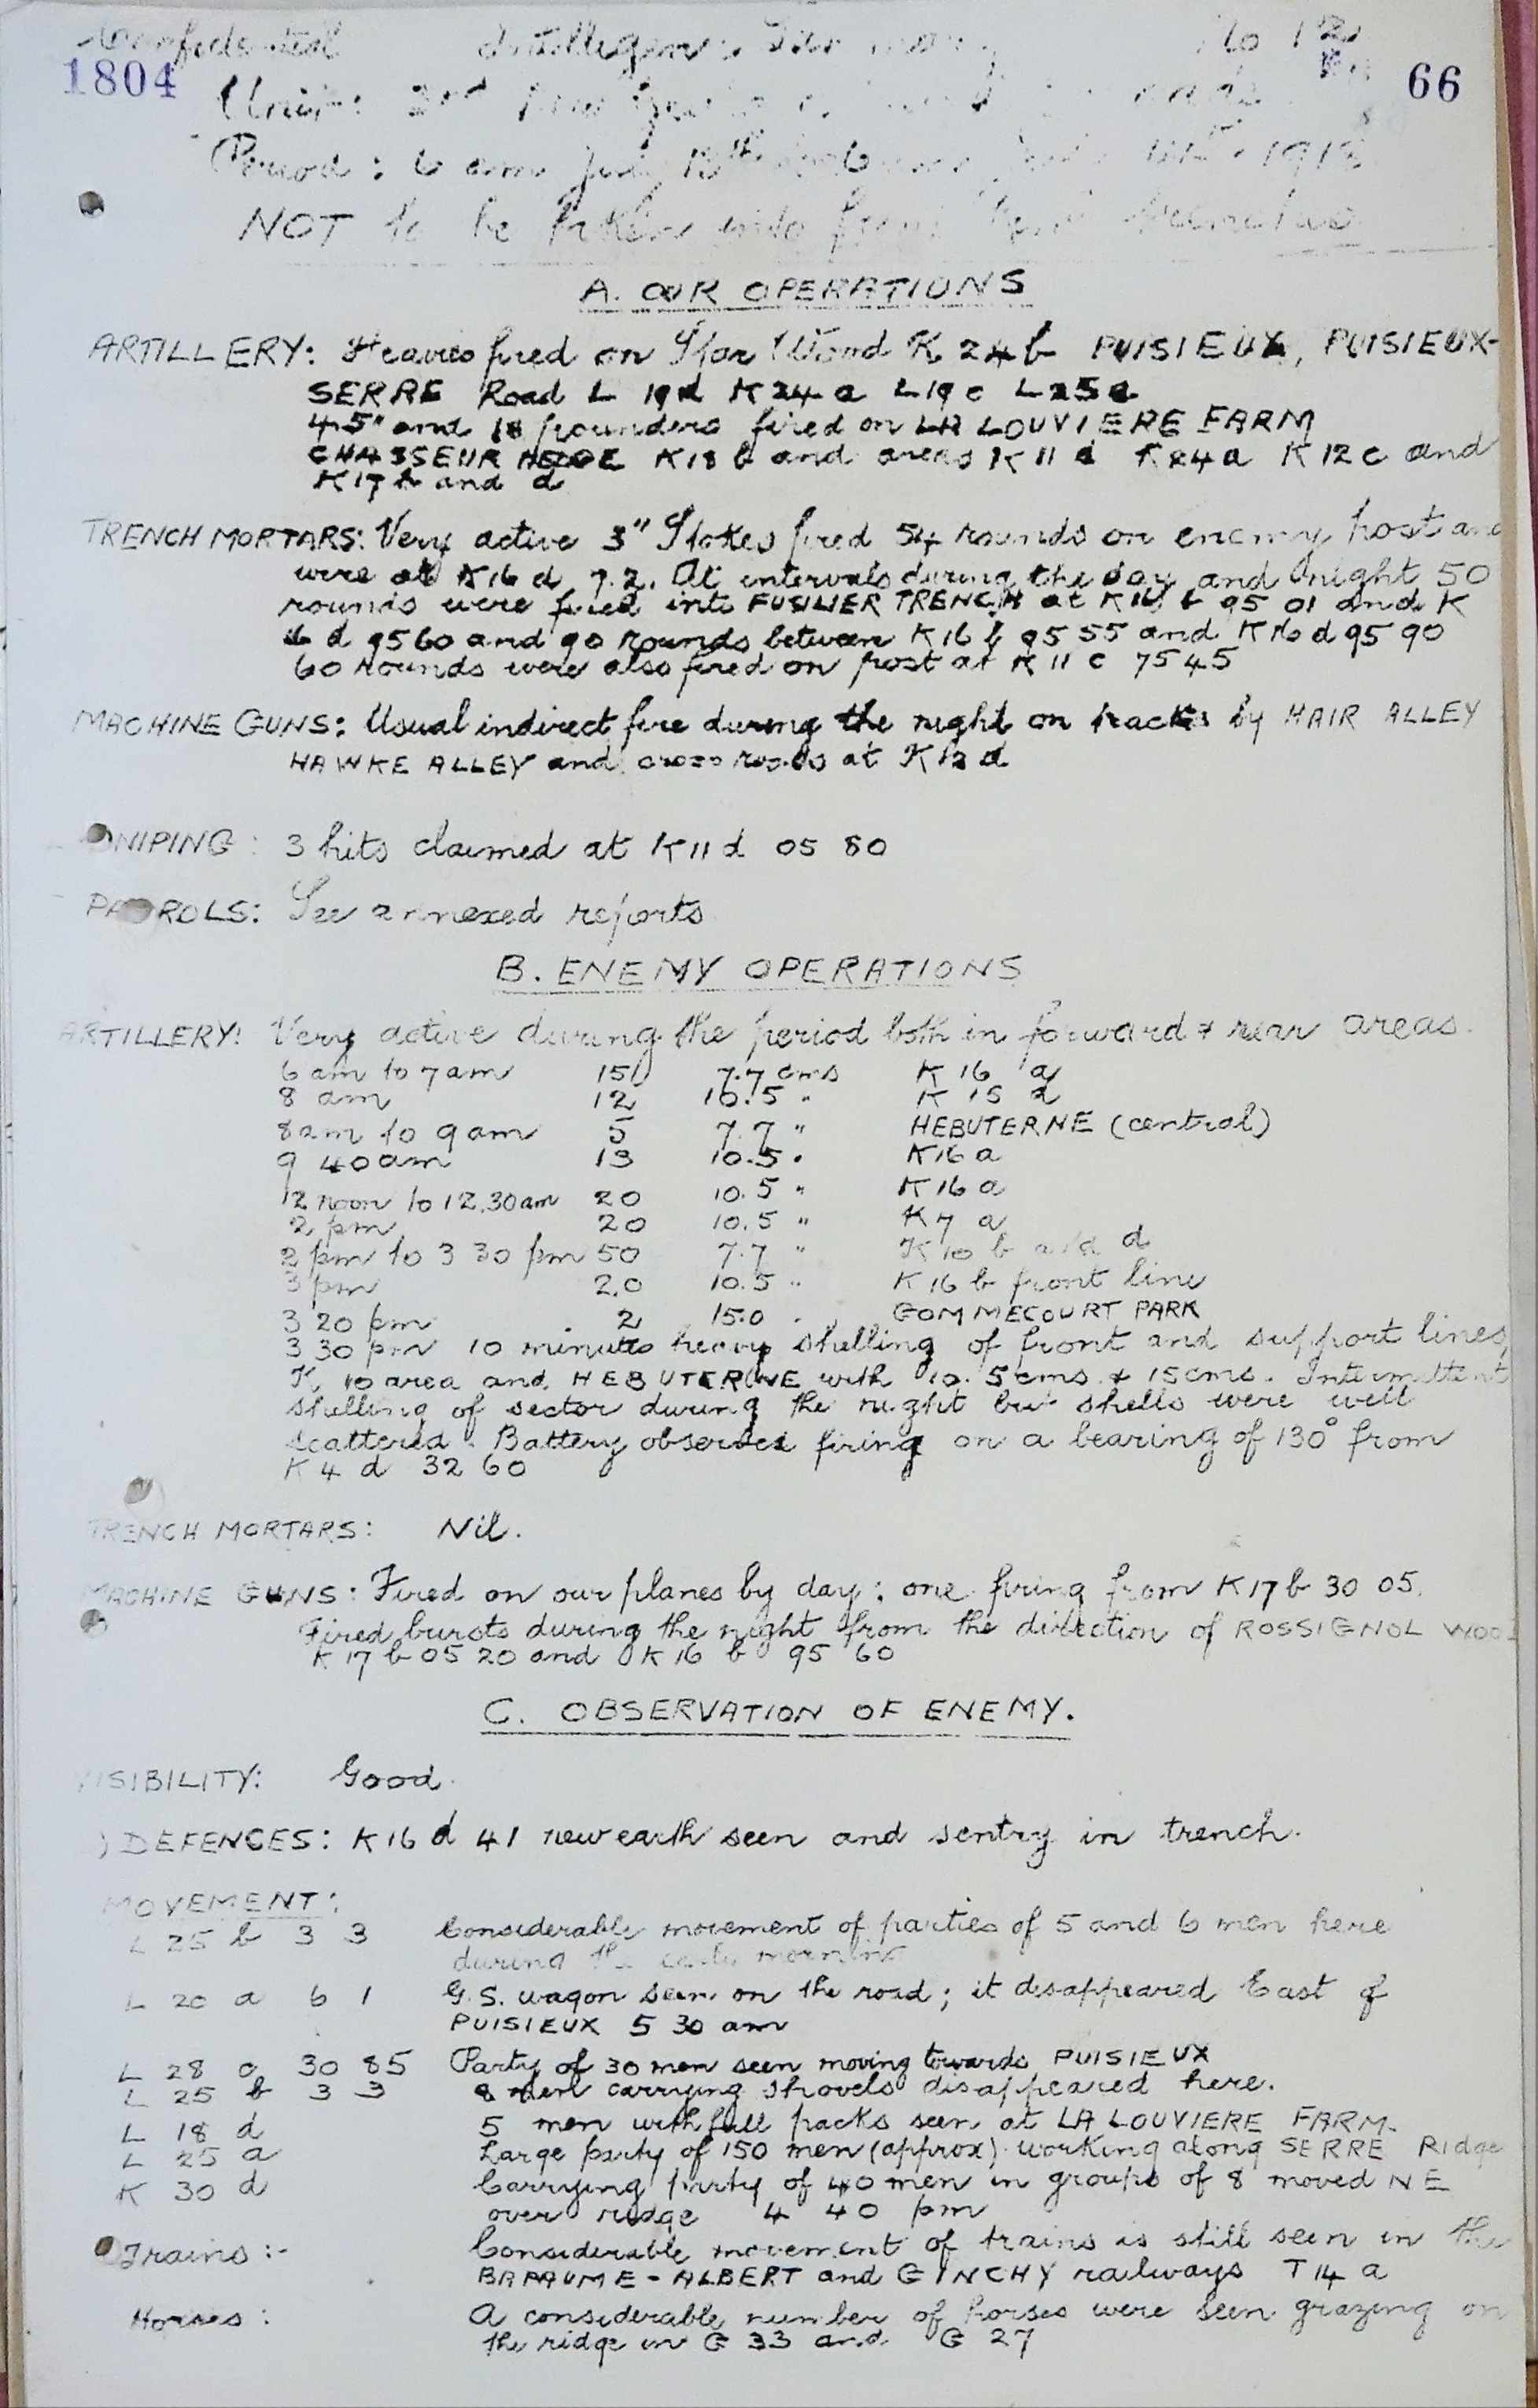 Confidential Intelligence Summary No 12
1804 66
Unit: 2nd New
Period: 6 am July 13th 1918
NOT to be taken into front line
A. OUR OPERATIONS
ARTILLERY: Heavies fired on Star Wood K 24 b PUISIEUX, PUISIEUX-
SERRE Road L 19d K24 a L19 c L25a
4.5" and 18 pounders fired on LA LOUVIERE FARM
CHASSEUR HEDGE K18 b and areas K 11 d K24a K 12 c and
K17 b and d
TRENCH MORTARS: Very active 3" Stokes fired 54 rounds on enemy post and
were at K16 d 7.2. At intervals during the day and night 50
rounds were fired into FUSILIER TRENCH at K16 b 95 01 and K
16 d 95 60 and 90 rounds between K16 b 95 55 and K16 d 95 90
60 rounds were also fired on post at K 11 c 75 45
MACHINE GUNS: Usual indirect fire during the night on tracks by HAIR ALLEY
HAWKE ALLEY and cross roads at K12 d
SNIPING: 3 hits claimed at K11 d 05 80
PATROLS: See annexed reports
B. ENEMY OPERATIONS
ARTILLERY: Very active during the period both in forward & rear areas.
6 am to 7 am 150 7.7 cms K 16 a
8 am 12 10.5 " K 15 d
8am to 9 am 5 7.7 " HEBUTERNE (central)
9 40 am 13 10.5 " K16 a
12 noon to 12.30 am 20 10.5 " K 16 a
2 pm 20 10.5 " K 4 a
2 pm to 3 30 pm 50 7.7 " K 10 b and d
3 pm 20 10.5 " K 16 b front line
3 20 pm 2 15.0 " GOMMECOURT PARK
3 30 pm 10 minutes heavy shelling of front and support lines,
K 10 area and HEBUTERNE with 10.5 cms & 15 cms. Intermittent
shelling of sector during the night but shells were well
scattered. Battery observed firing on a bearing of 130° from
K 4 d 32 60
TRENCH MORTARS: Nil.
MACHINE GUNS: Fired on our planes by day; one firing from K17 b 30 05.
Fired bursts during the night from the direction of ROSSIGNOL WOOD
K 17 b 05 20 and K 16 b 95 60
C. OBSERVATION OF ENEMY.
VISIBILITY: Good.
) DEFENCES: K16 d 41 new earth seen and sentry in trench.
MOVEMENT:
L 25 b 3 3 Considerable movement of parties of 5 and 6 men here
during the early morning
L 20 a 6 1 G.S. wagon seen on the road; it disappeared East of
PUISIEUX 5 30 am
L 28 a 30 85 Party of 30 men seen moving towards PUISIEUX
L 25 b 3 3 8 men carrying shovels disappeared here.
L 18 d 5 men with full packs seen at LA LOUVIERE FARM.
L 25 a Large party of 150 men (approx) working along SERRE Ridge
K 30 d Carrying party of 40 men in groups of 8 moved NE
over ridge 4 40 pm
Trains :- Considerable movement of trains is still seen in the
BAPAUME - ALBERT and GINCHY railways T 14 a
Horses : A considerable number of horses were seen grazing on
the ridge in G 33 and G 27